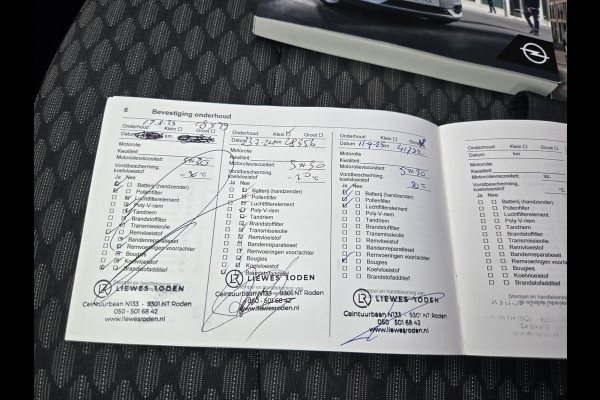 6 Bevestiging onderhoud
17-8-23
Onderhoud: Klein ☐ Groot ☐
Datum km
Motorolie
Kwaliteit:
Motorolieviscositeit: 5W30
Vorstbescherming, koelvloeistof -36°C
Ja Nee
Batterij (handzender)
Pollenfilter
Luchtfilterelement
Poly V-riem
Tandriem
Brandstoffilter
Transmissieolie
Remvloeistof
Bandenreparatieset
Remvoeringen voor/achter
Bougies
Koelvloeistof
Brandstofadditief
LIEWES RODEN
Ceintuurbaan N133 - 9301 NT Roden
050 - 501 68 42
www.liewesroden.nl
Onderhoud: Klein Groot ☐
Datum km
Motorolie
Kwaliteit:
Motorolieviscositeit: 5W30
Vorstbescherming, koelvloeistof °C
Ja Nee
Batterij (handzender)
Pollenfilter
Luchtfilterelement
Poly V-riem
Tandriem
Brandstoffilter
Transmissieolie
Remvloeistof
Bandenreparatieset
Remvoeringen voor/achter
Bougies
Koelvloeistof
Brandstofadditief
LIEWES RODEN
Ceintuurbaan N133 - 9301 NT Roden
050 - 501 68 42
www.liewesroden.nl
Onderhoud: Klein ☐ Groot
Datum km
Motorolie
Kwaliteit:
Motorolieviscositeit: 5W30
Vorstbescherming, koelvloeistof °C
Ja Nee
Batterij (handzender)
Pollenfilter
Luchtfilterelement
Poly V-riem
Tandriem
Brandstoffilter
Transmissieolie
Remvloeistof
Bandenreparatieset
Remvoeringen voor/achter
Bougies
Koelvloeistof
Brandstofadditief
LIEWES RODEN
Ceintuurbaan N133 - 9301 NT Roden
050 - 501 68 42
www.liewesroden.nl
Onderhoud: Klein ☐ Groot ☐
Datum km
Motorolie
Kwaliteit:
Motorolieviscositeit: W-
Vorstbescherming, koelvloeistof °C
Ja Nee
Batterij (handzender)
Pollenfilter
Luchtfilterelement
Poly V-riem
Tandriem
Brandstoffilter
Transmissieolie
Remvloeistof
Bandenreparatieset
Remvoeringen voor/achter
Bougies
Koelvloeistof
Brandstofadditief
Stempel en handtekening